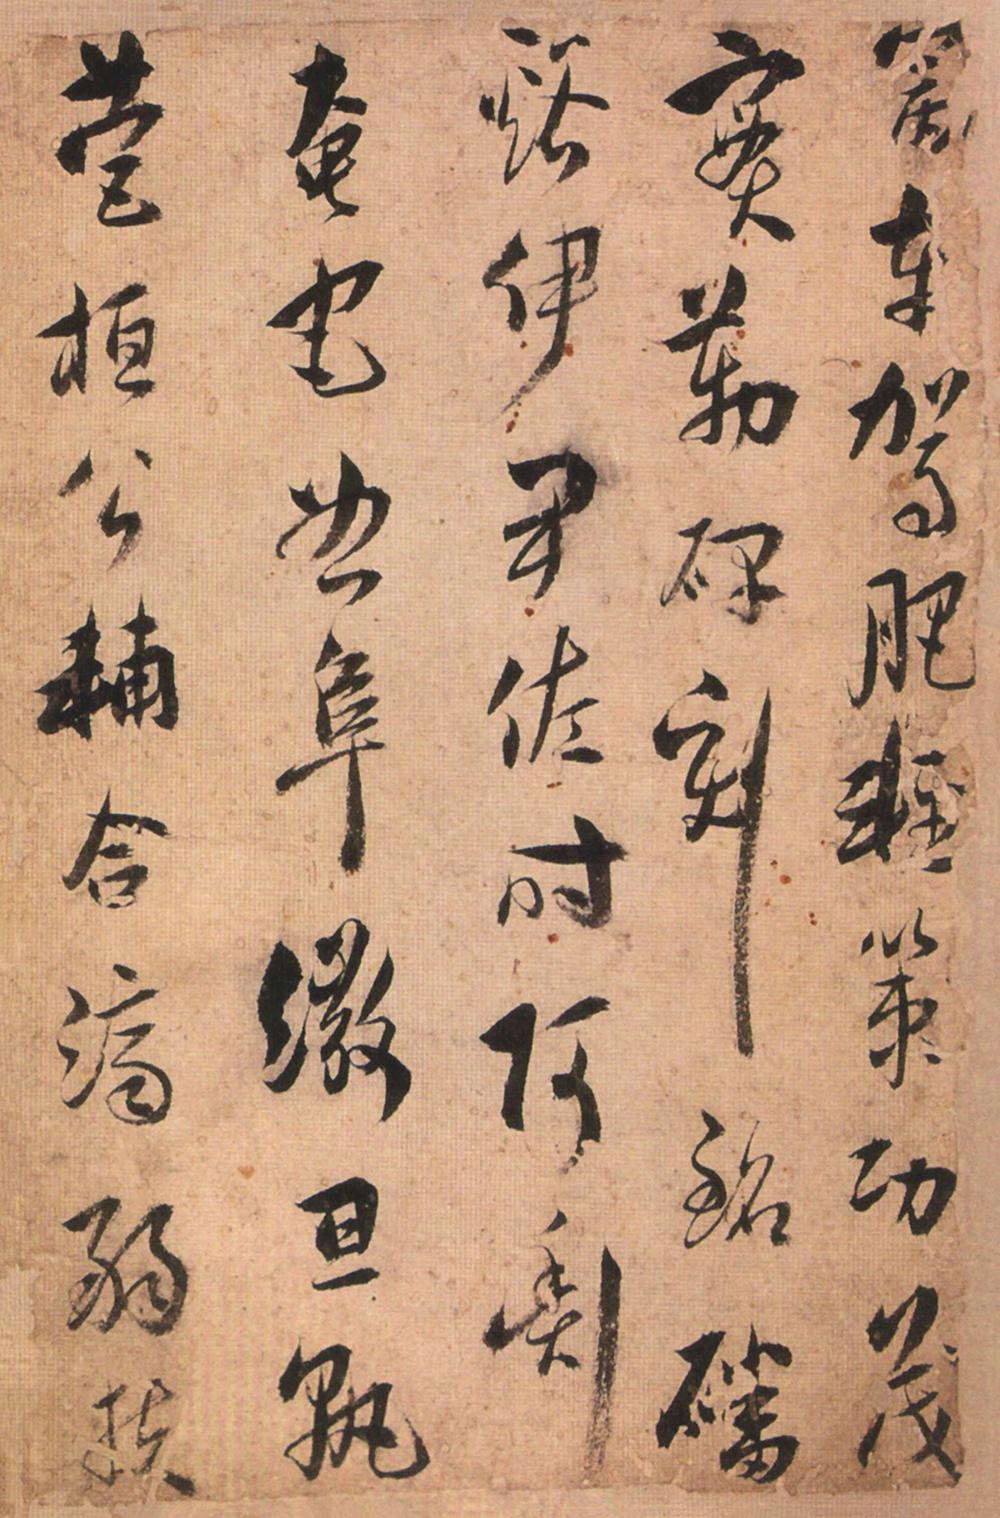 富车驾肥轻策功茂
實勒碑刻銘磻
谿伊尹佐时阿衡
奄宅曲阜微旦孰
營桓公輔合濟弱扶